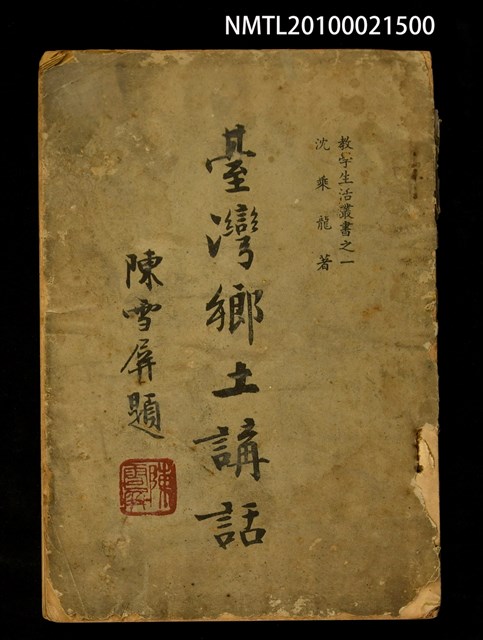 NMTL20100021500
教學生活叢書之一
沈乘龍著
臺灣鄉土講話
陳雪屏題
陳雪屏